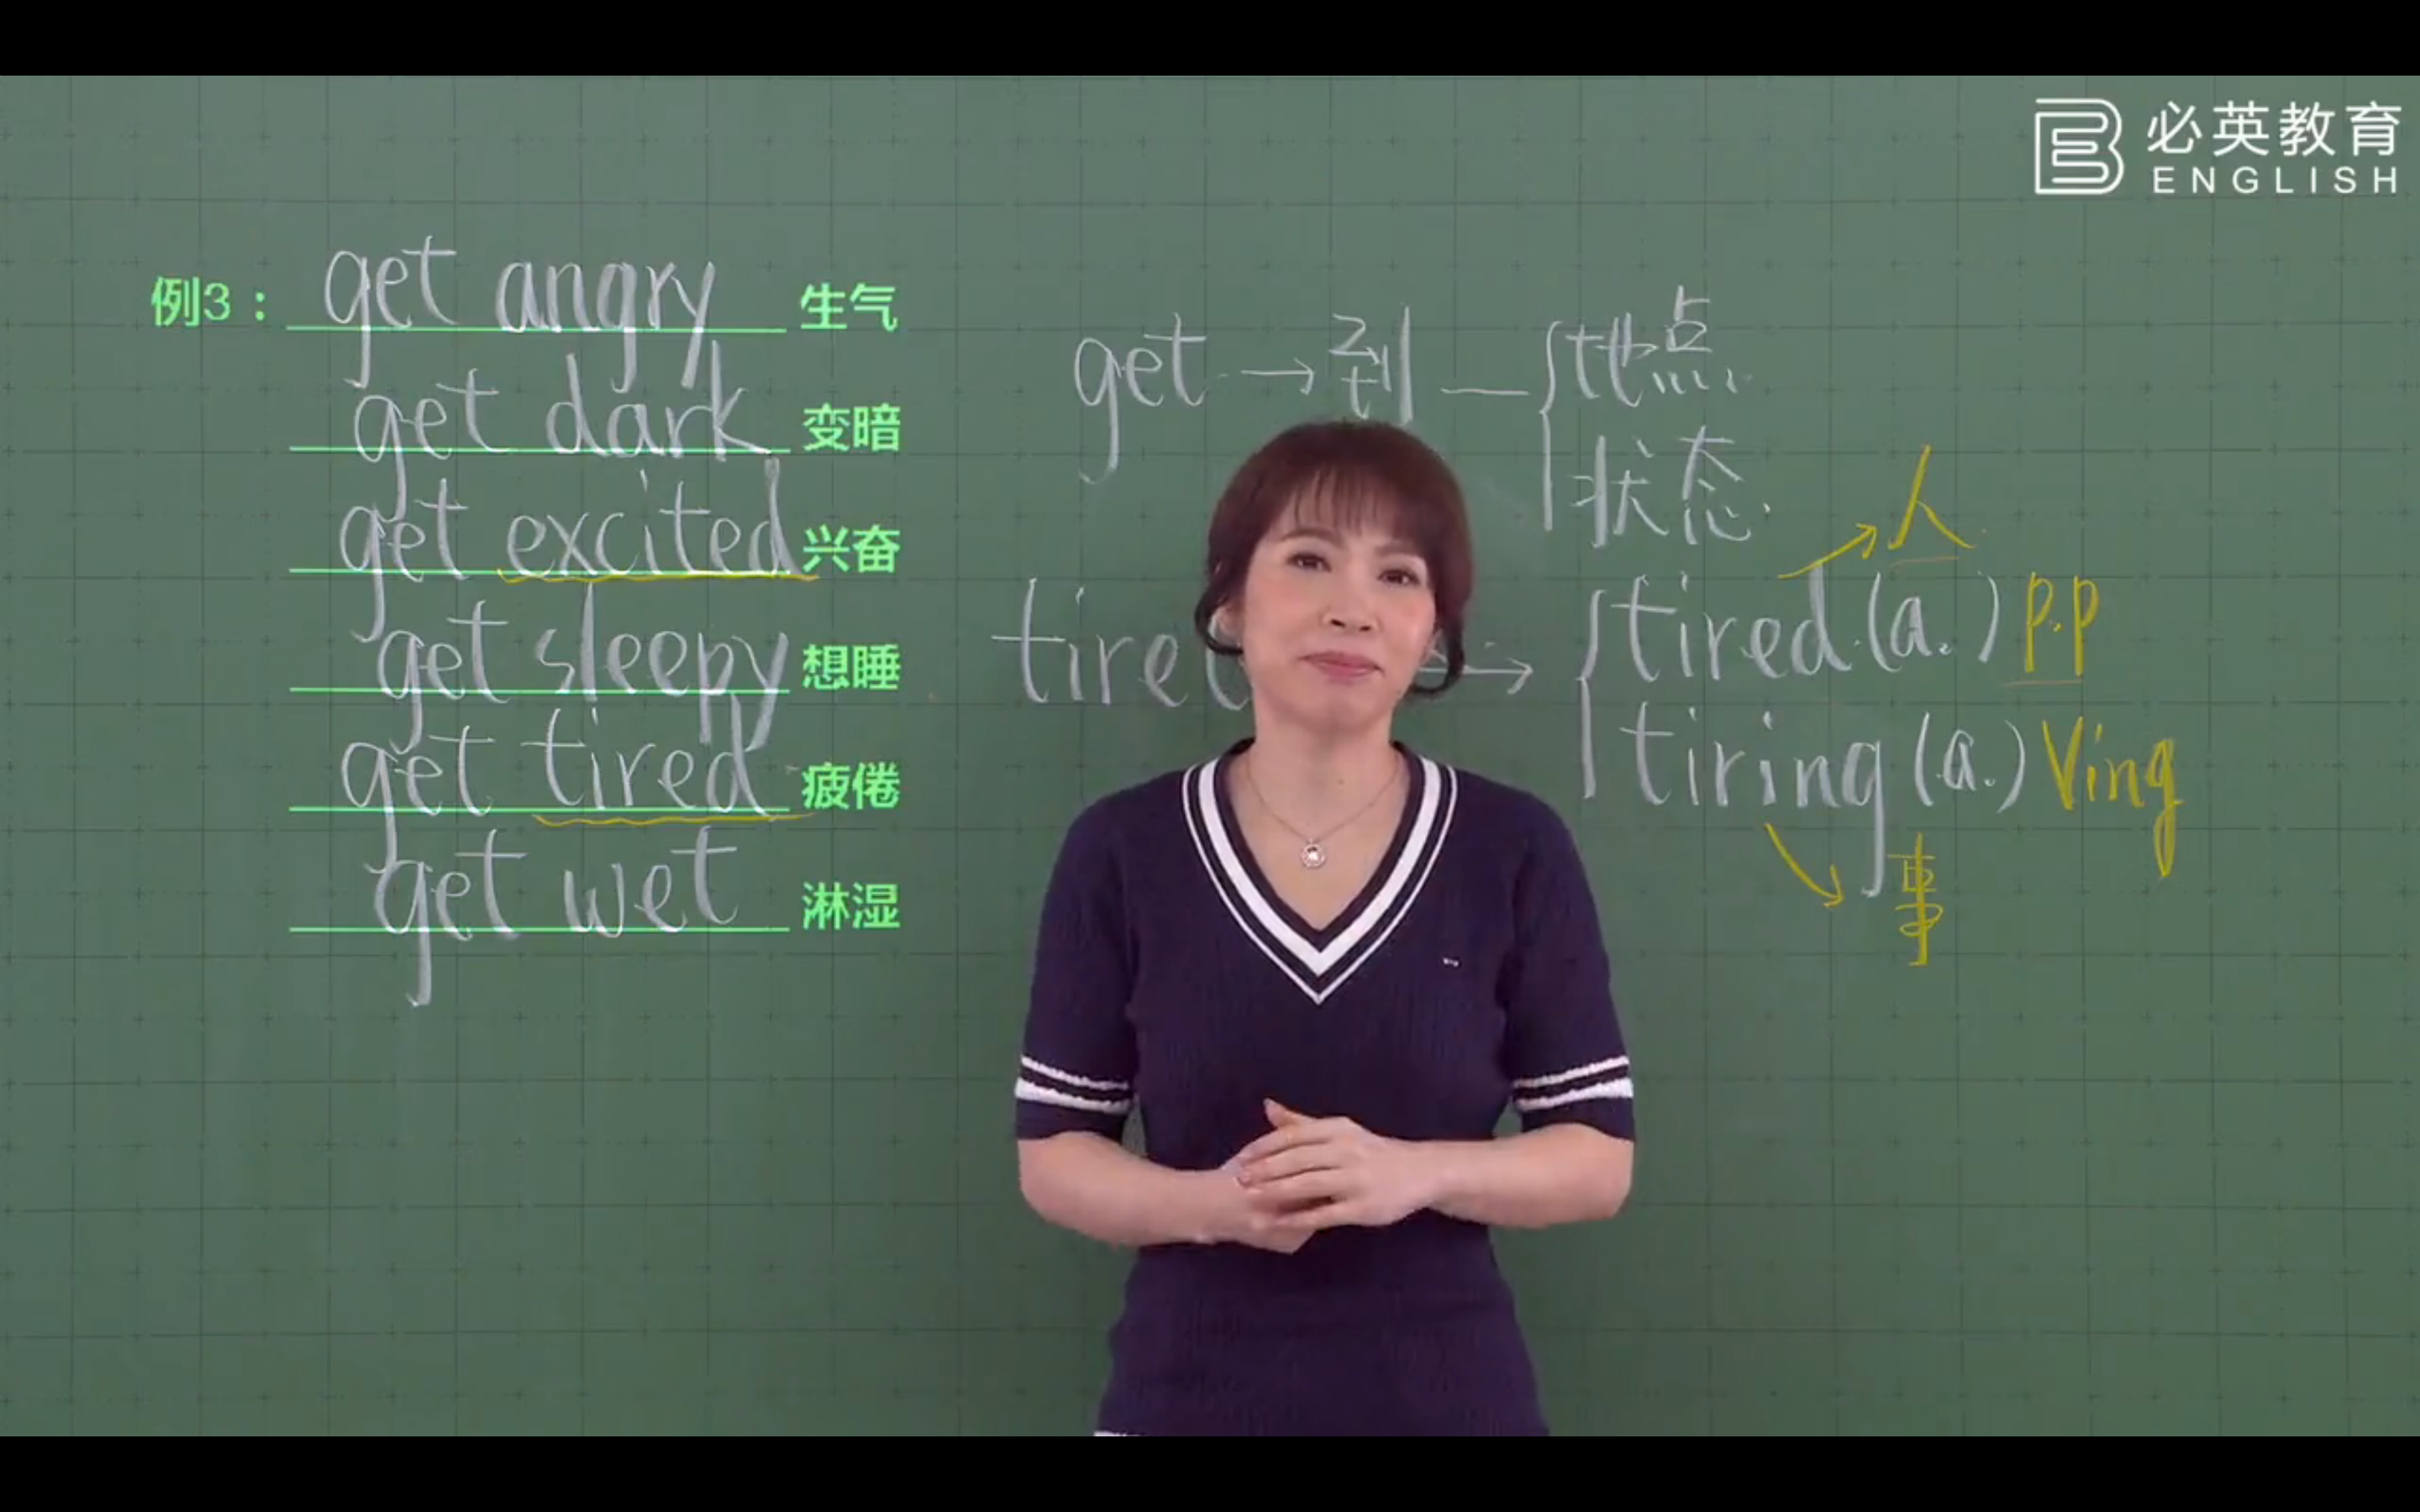 必英教育
ENGLISH
例3： get angry 生气
get dark 变暗
get excited 兴奋
get sleepy 想睡
get tired 疲倦
get wet 淋湿
get → 到 — { 地点
状态
人
tire → { tired (a.) p.p
tiring (a.) Ving
事